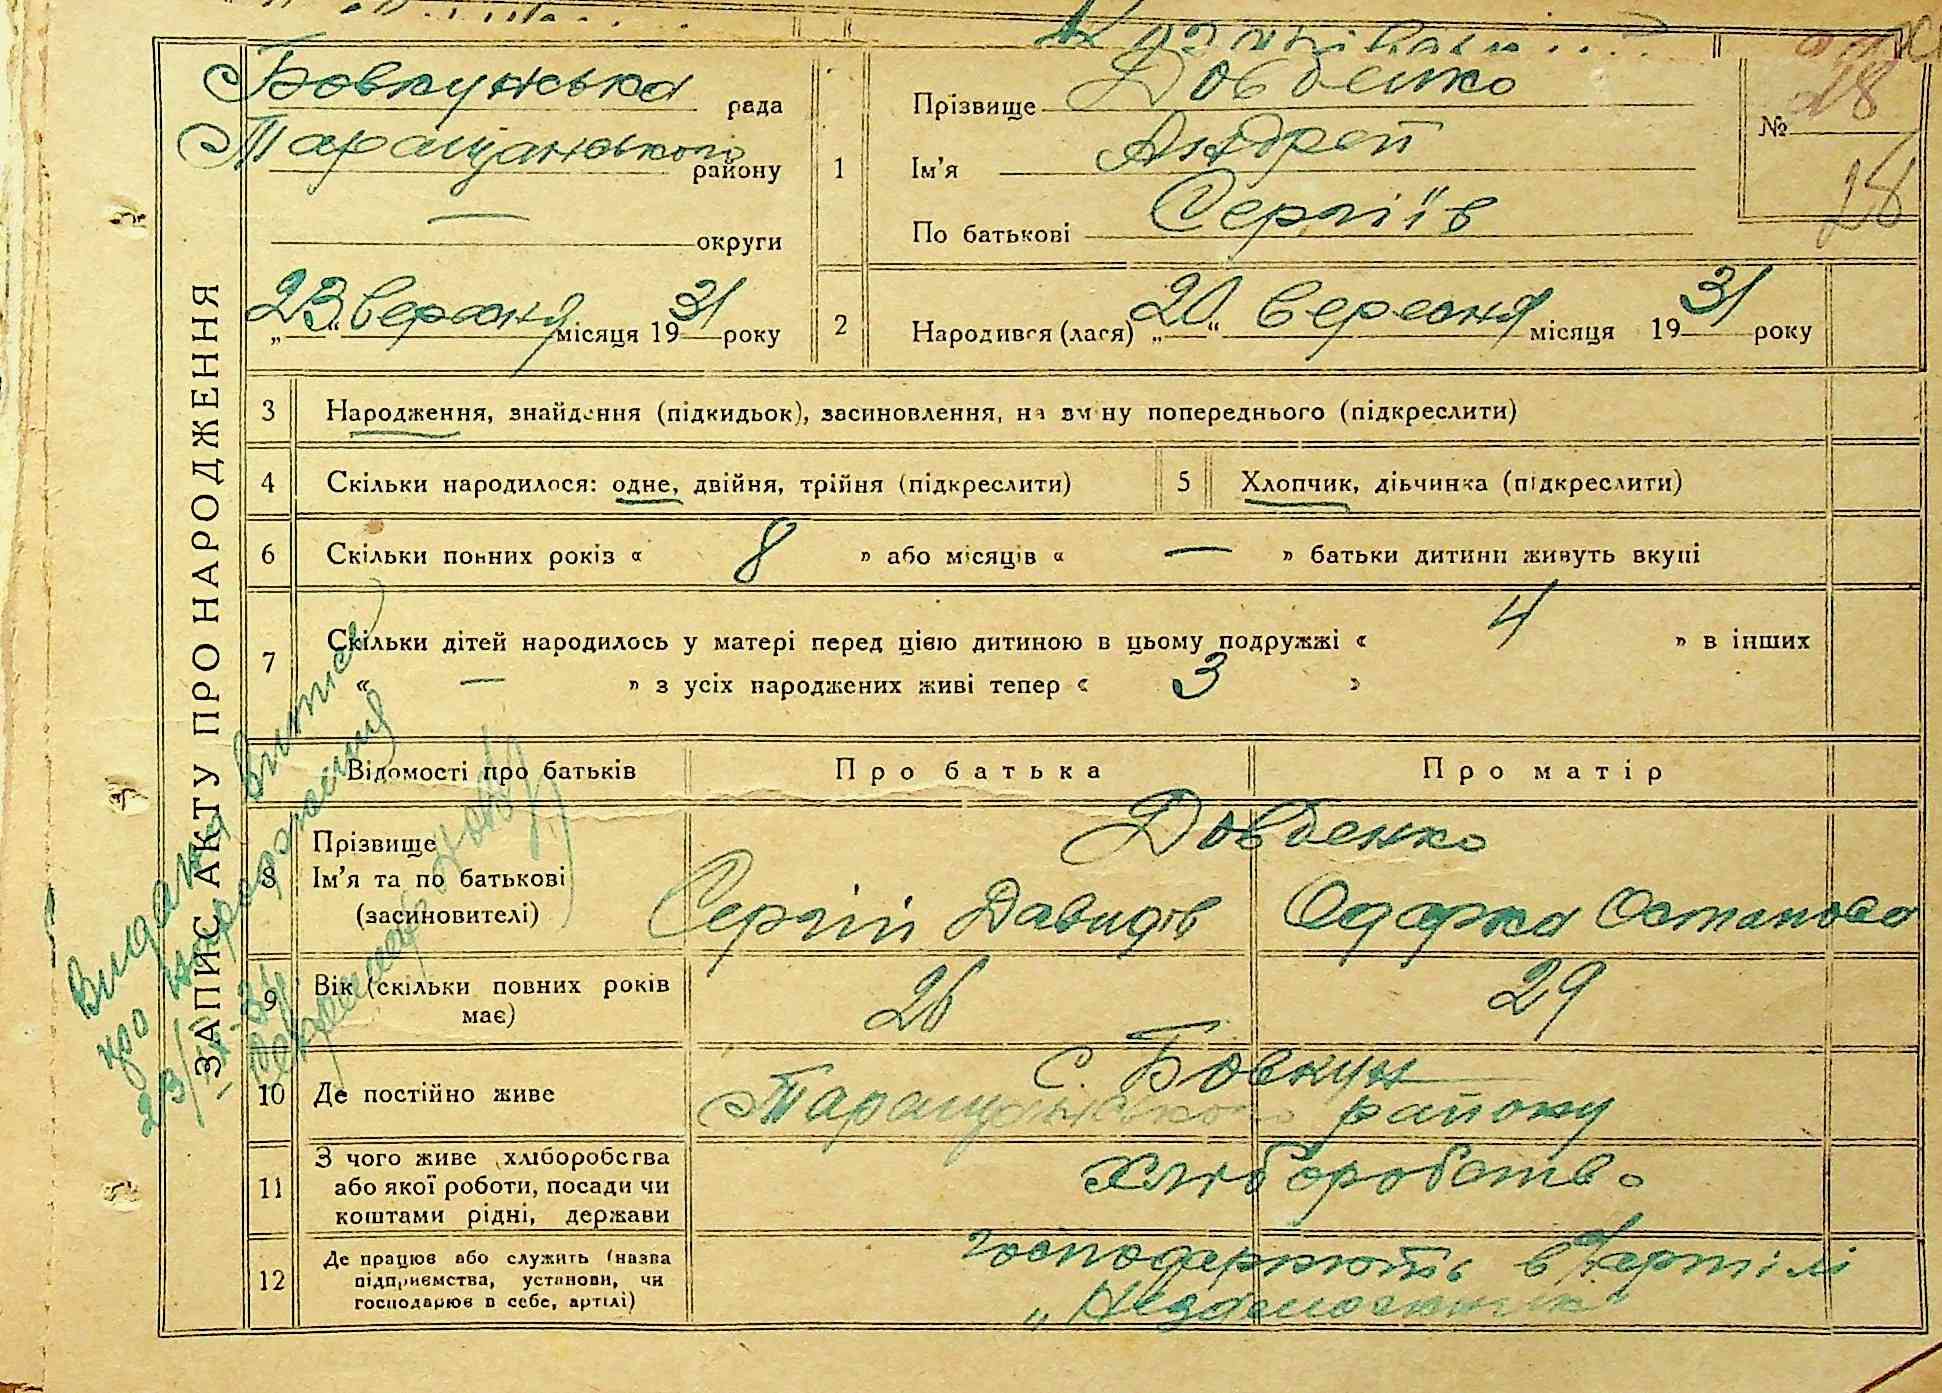 ЗАПИС АКТУ ПРО НАРОДЖЕННЯ
Бовкунська рада
Таращанського району
— округи
„23“ вересня місяця 1931 року
1
Прізвище Довбенко
Ім'я Андрей
По батькові Сергіїв
№ 28
28
2
Народився (лася) „20“ вересня місяця 1931 року
3 Народження, знайдення (підкидьок), засиновлення, на зміну попереднього (підкреслити)
4 Скільки народилося: одне, двійня, трійня (підкреслити)
5 Хлопчик, дівчинка (підкреслити)
6 Скільки повних років « 8 » або місяців « — » батьки дитини живуть вкупі
7 Скільки дітей народилось у матері перед цією дитиною в цьому подружжі « 4 » в інших
« — » з усіх народжених живі тепер « 3 »
Відомості про батьків
Про батька
Про матір
8 Прізвище
Ім'я та по батькові
(засиновителі)
Довбенко
Сергій Давидів
Одарка Остапова
9 Вік (скільки повних років
має)
26
29
10 Де постійно живе
с. Бовкун
Таращанського району
11 З чого живе хліборобства
або якої роботи, посади чи
коштами рідні, держави
Хліборобство
12 Де працює або служить (назва
підприємства, установи, чи
господарює в себе, артілі)
господарюють в артілі
„Незаможник“
Видана витись
про народження
23/IX-31
Секретар